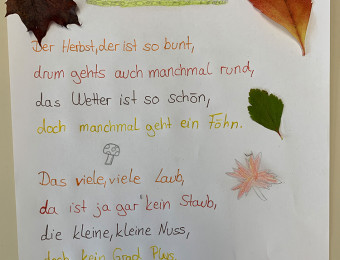 Der Herbst, der ist so bunt,
drum gehts auch manchmal rund,
das Wetter ist so schön,
doch manchmal geht ein Föhn.
Das viele, viele Laub,
da ist ja gar kein Staub,
die kleine, kleine Nuss,
doch kein Grad Plus.